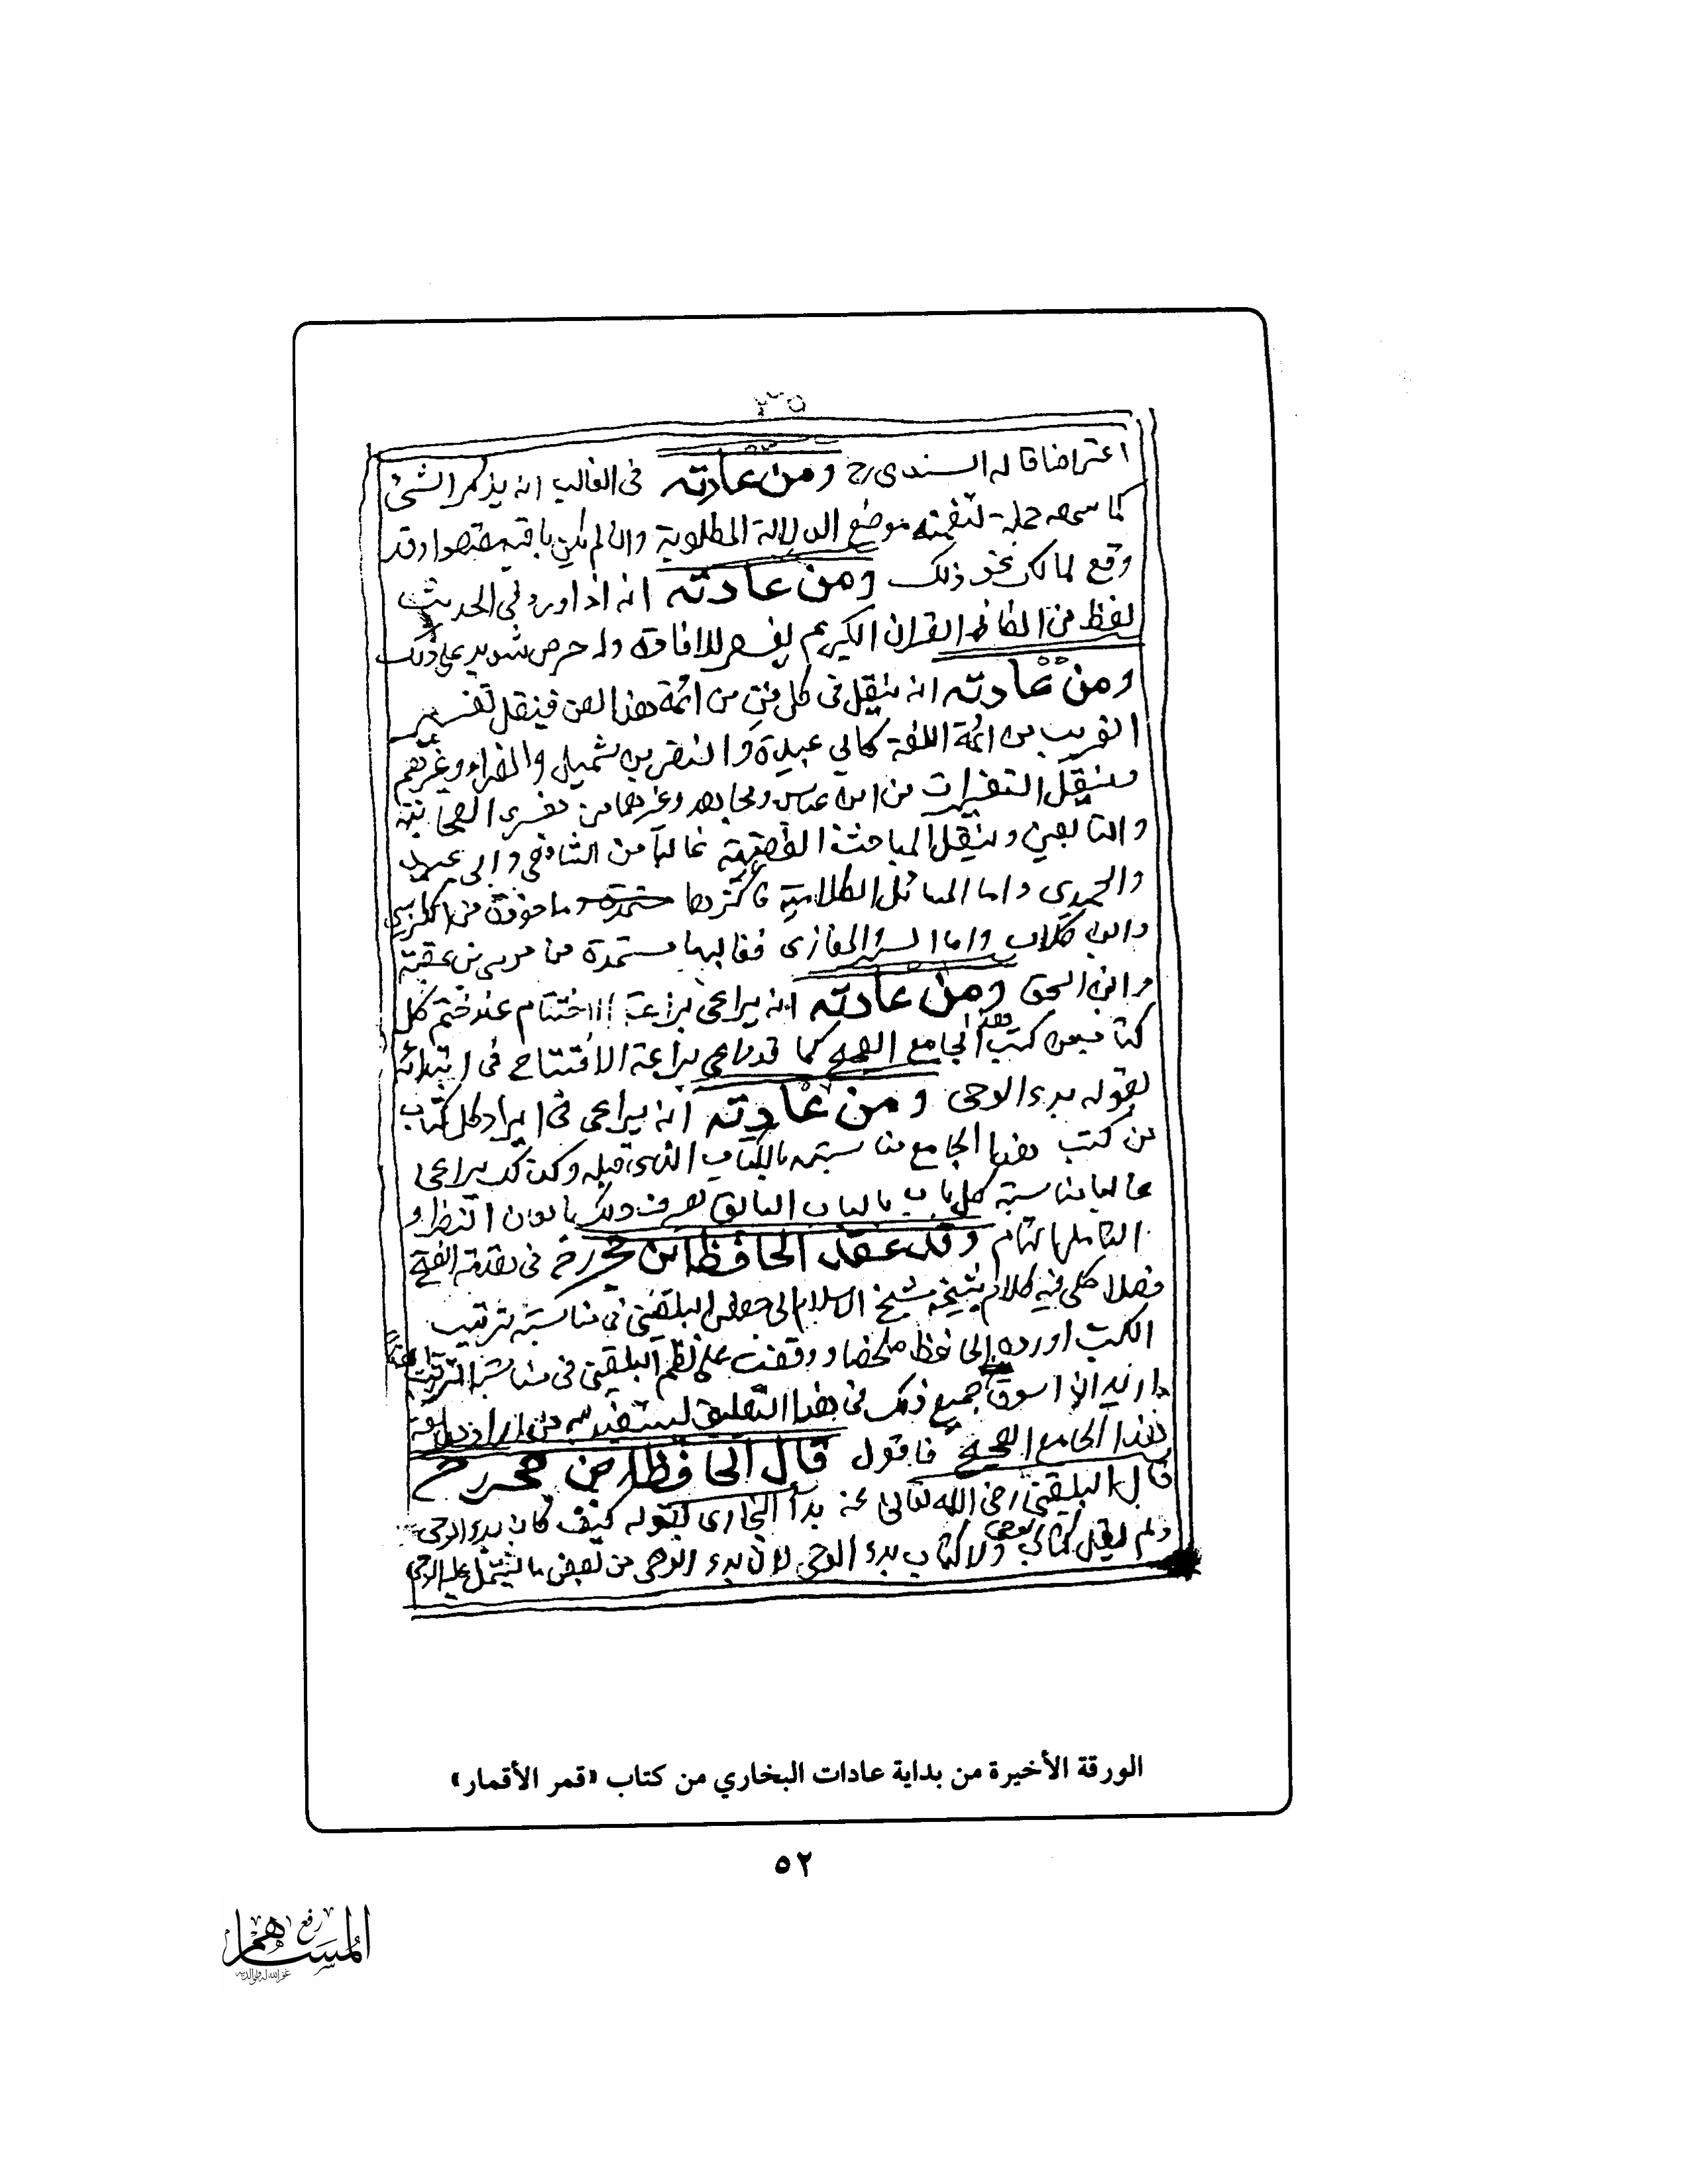 ٣٥
اعتراضا قاله السندى رح ومن عادته فى الغالب انه يذكر الشئ
كما سمعه جملة لتضمنه موضع الدلالة المطلوبة وان لم يكن باقيه مقصودا وقد
وقع لمالك نحو ذلك ومن عادته انه اذا ورد فى الحديث
لفظ من الفاظ القران الكريم يفسره للافادة وله حرص شديد على ذلك
ومن عادته انه ينقل فى كل فن من ائمة هذا الفن فينقل تفسير
الغريب من ائمة اللغة كابى عبيدة والنضر بن شميل والفراء وغيرهم
وينقل التفسيرات من ابن عباس ومجاهد وغيرهما من مفسرى الصحابة
والتابعين وينقل المباحث الفقهية غالبا من الشافعى وابى عبيد
والحميدى واما المسائل الكلامية فاكثرها ماخوذة من الكرابيسى
وابن كلاب واما السير والمغازى فغالبها مستمدة من موسى بن عقبة
وابن اسحق ومن عادته انه يراعى براعة الاختتام عند ختم كل
كتاب من كتب هذا الجامع الصحيح كما قد راعى براعة الافتتاح فى ابتدائه
بقوله بدء الوحى ومن عادته انه يراعى فى ايراد كل كتاب
من كتب هذا الجامع مناسبته بالكتاب الذى قبله وكذلك يراعى
غالبا مناسبة كل باب بالباب السابق تعرف ذلك بامعان النظر و
التامل التام وقد عقد الحافظ ابن حجر رح فى مقدمة الفتح
فصلا حكى فيه كلام شيخه شيخ الاسلام ابى حفص البلقينى فى مناسبة ترتيب
الكتب اورده الحافظ ملخصا ووقفت على نظم البلقينى فى مناسبة الترتيب
واريد ان اسوق جميع ذلك فى هذا التعليق ليستفيد به من اراد
هذا الجامع الصحيح فاقول قال الحافظ ابن حجر رح
قال البلقينى رضى الله تعالى عنه بدأ البخارى بقوله كيف كان بدء الوحى
ولم يقل كتاب الوحى ولا كتاب بدء الوحى لان بدء الوحى من بعض ما يشتمل عليه الوحى
الورقة الأخيرة من بداية عادات البخاري من كتاب «قمر الأقمار»
٥٢
رفع
المساهم
غفر الله له ولوالديه